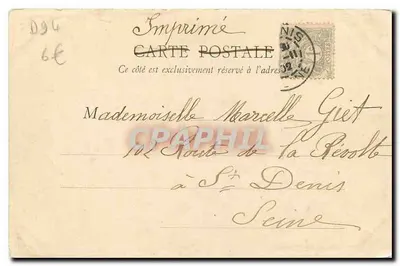 D94
6€
Imprimé
CARTE POSTALE
Ce côté est exclusivement réservé à l'adresse
Mademoiselle Marcelle Giet
102 Route de la Révolte
à St Denis
Seine
CPAPHIL.COM